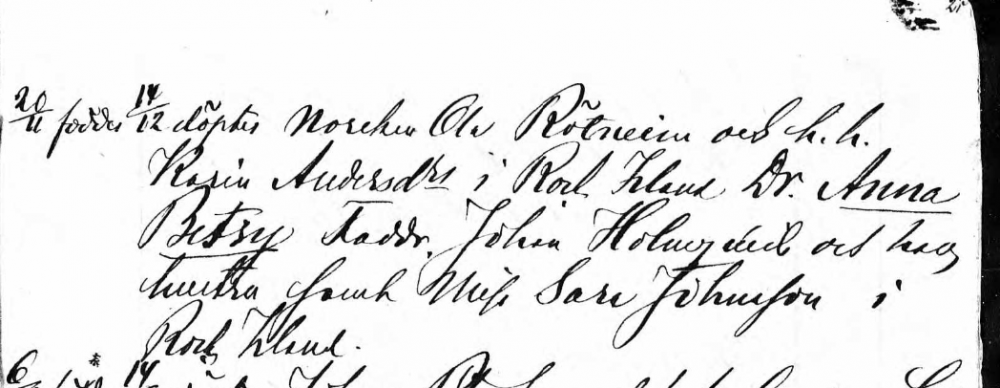 20/11 föddes 14/12 döptes Norcken Ola Rötneim och h.h.
Karin Andersdrs i Rock Island Dr. Anna
Betsy Faddr. Johan Holmquist och hans
hustru samt Miss Sara Johnsson i
Rock Island.
6 14